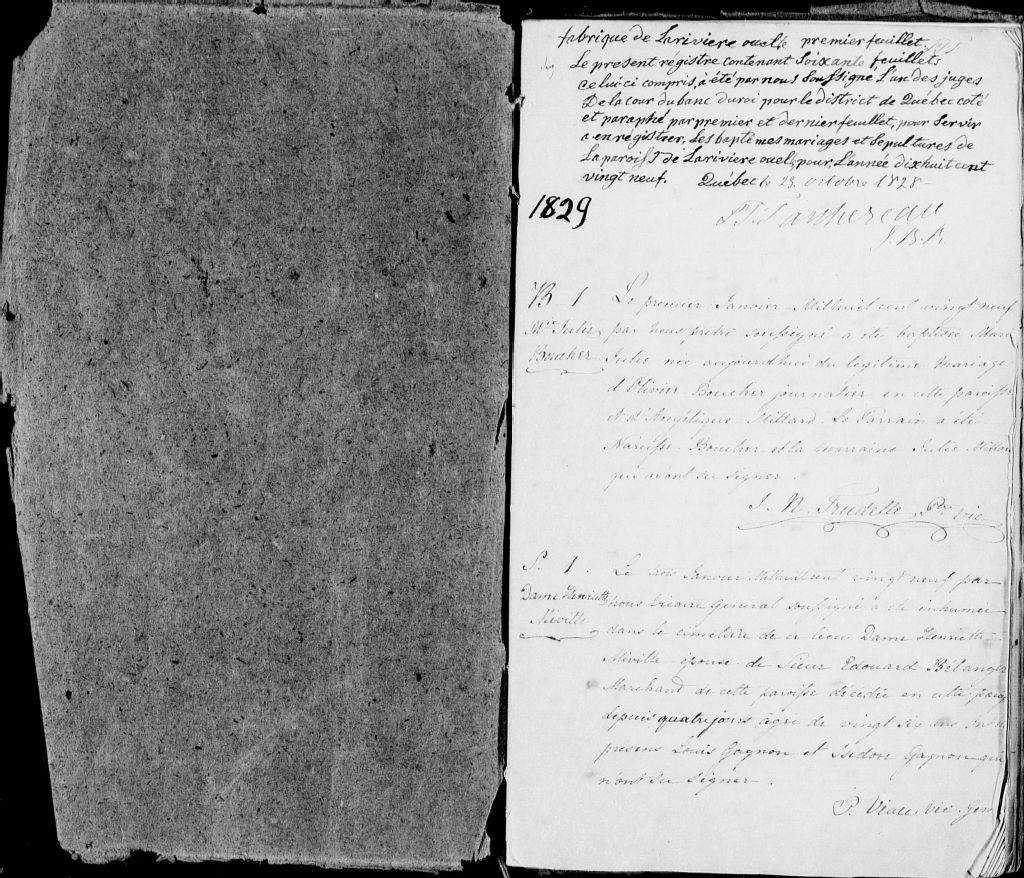 fabrique de Lariviere ouelle premier feuillet
Le present régistre contenant Soixante feuillets
celui ci compris, a été par nous Soussigné L'un des juges
De la cour du banc du roi pour le district de Québec coté
et paraphé par premier et dernier feuillet, pour Servir
a enrégistrer, Les baptêmes mariages et Sepultures de
La paroisse de Lariviere ouelle pour L'année dixhuit cent
vingt neuf. Québec le 23 octobre 1828
1829
J. B. R.
B 1
Mie Julie
Boucher
Le premier Janvier Milhuit cent vingt neuf
par nous prêtre soussigné a été baptisée Marie
Julie née aujourdhui du legitime mariage
d'Olivier Boucher journalier en cette paroisse
et d'Angélique Millard. Le Parrain a été
Narcisse Boucher et la marraine Julie Millard
qui n'ont su signer
J. N. Trudelle Ptre vic
S. 1.
Dame Henriette
Miville
Le trois Janvier Milhuitcent vingt neuf par
Nous Vicaire General soussigné a été inhumée
dans le cimetière de ce lieu Dame Henriette
Miville épouse de Sieur Edouard Bélanger
Marchand de cette paroisse décédée en cette
depuis quatre jours agée de vingt six ans
presens Louis Gagnon et Isidore Gagnon qui
n'ont su signer.
P. Viau, vic. gen